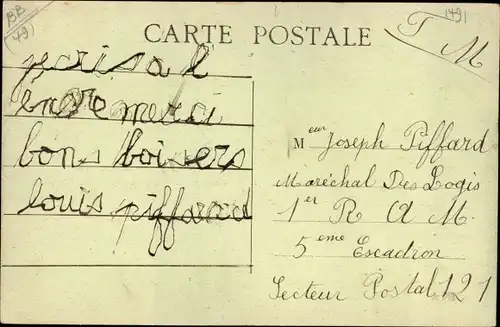 BB
(491)
1491
CARTE POSTALE
T M
merci
bons boisers
louis piffard
Meur Joseph Piffard
Maréchal Des Logis
1er R A M.
5eme Escadron
Secteur Postal 121